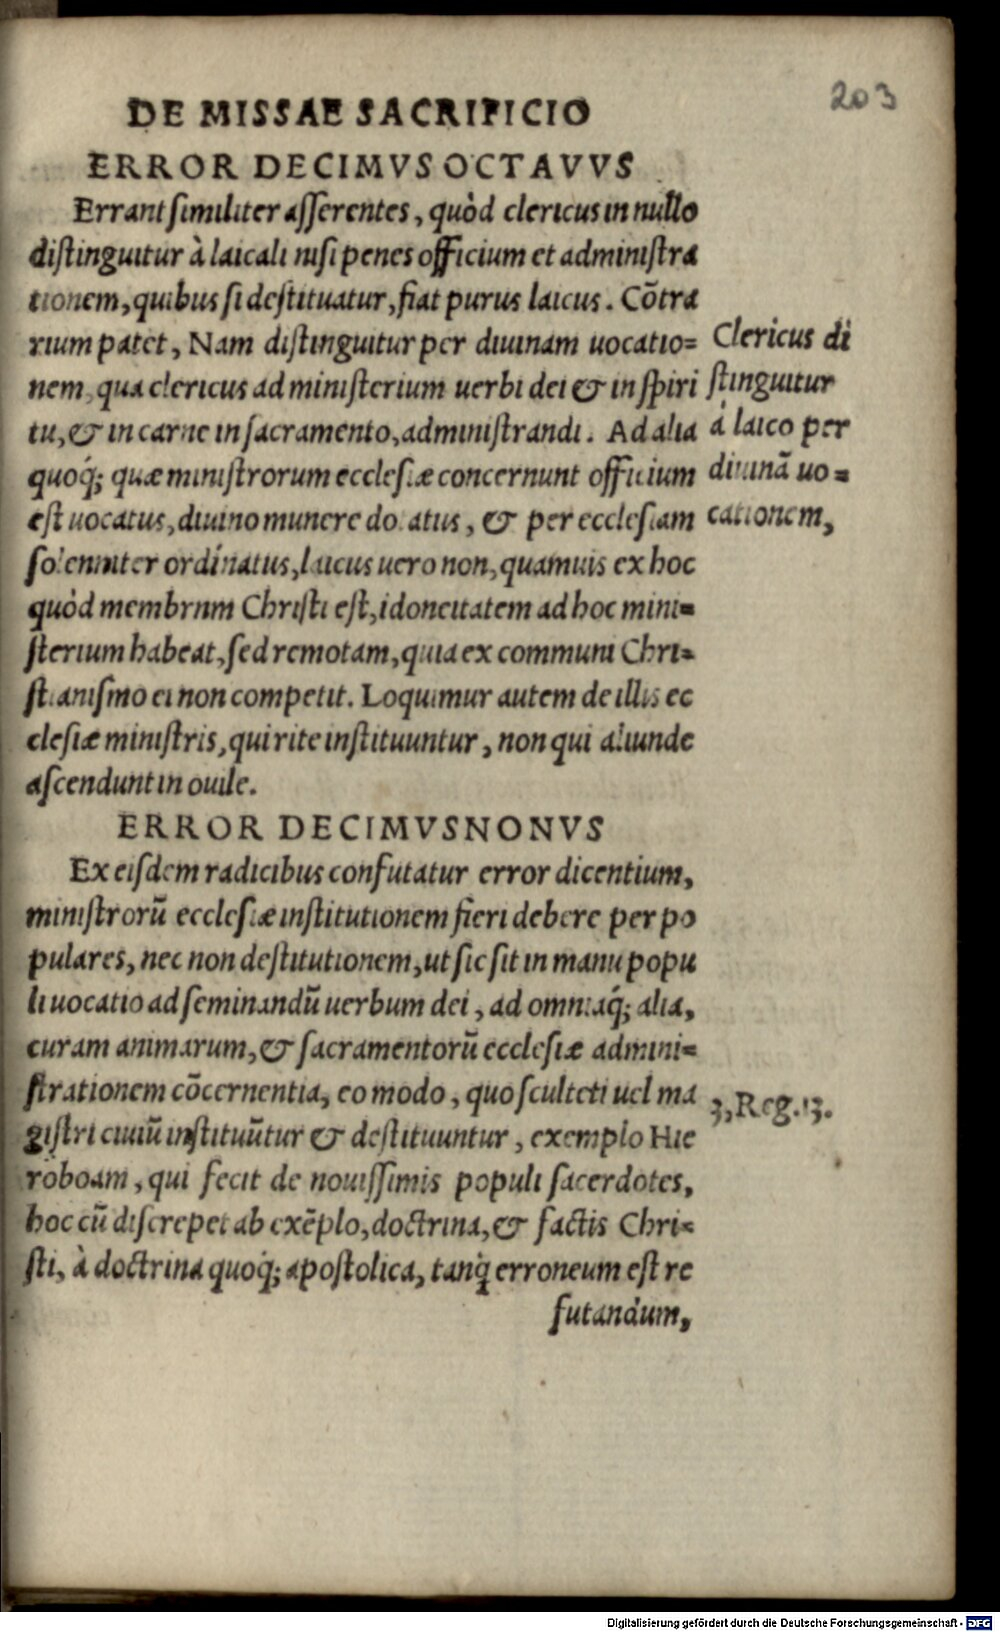 203
DE MISSAE SACRIFICIO
ERROR DECIMVS OCTAVVS
Errant similiter asserentes, quòd clericus in nullo
distinguitur à laicali nisi penes officium et administra
tionem, quibus si destituatur, fiat purus laicus. Cõtra
rium patet, Nam distinguitur per diuinam uocatio=
nem, qua clericus ad ministerium uerbi dei & in spiri
tu, & in carne in sacramento, administrandi. Ad alia
quoq́; quæ ministrorum ecclesiæ concernunt officium
est uocatus, diuino munere dotatus, & per ecclesiam
solenniter ordinatus, laicus uero non, quamuis ex hoc
quòd membrnm Christi est, idoneitatem ad hoc mini=
sterium habeat, sed remotam, quia ex communi Chri=
stianismo ei non competit. Loquimur autem de illis ec
clesiæ ministris, qui rite instituuntur, non qui aliunde
ascendunt in ouile.
Clericus di
stinguitur
à laico per
diuinã uo=
cationem,
ERROR DECIMVSNONVS
Ex eisdem radicibus confutatur error dicentium,
ministrorũ ecclesiæ institutionem fieri debere per po
pulares, nec non destitutionem, ut sic sit in manu popu
li uocatio ad seminandũ uerbum dei, ad omniaq́; alia,
curam animarum, & sacramentorũ ecclesiæ admini=
strationem cõcernentia, eo modo, quo sculteti uel ma
gistri ciuiũ instituũtur & destituuntur, exemplo Hie
roboam, qui fecit de nouissimis populi sacerdotes,
hoc cũ discrepet ab exẽplo, doctrina, & factis Chri=
sti, à doctrina quoq́; apostolica, tanq̃ erroneum est re
futandum,
3, Reg. 13.
Digitalisierung gefördert durch die Deutsche Forschungsgemeinschaft - DFG